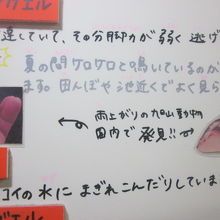 ガエル
達していて、その分脚力が弱く 逃げ
夏の間ケロケロと鳴いているのが
ます。田んぼや池近くでよく見ら
雨上がりの丸山動物
園内で発見!!
コイの水に まぎれこんだりしていま
ガエル